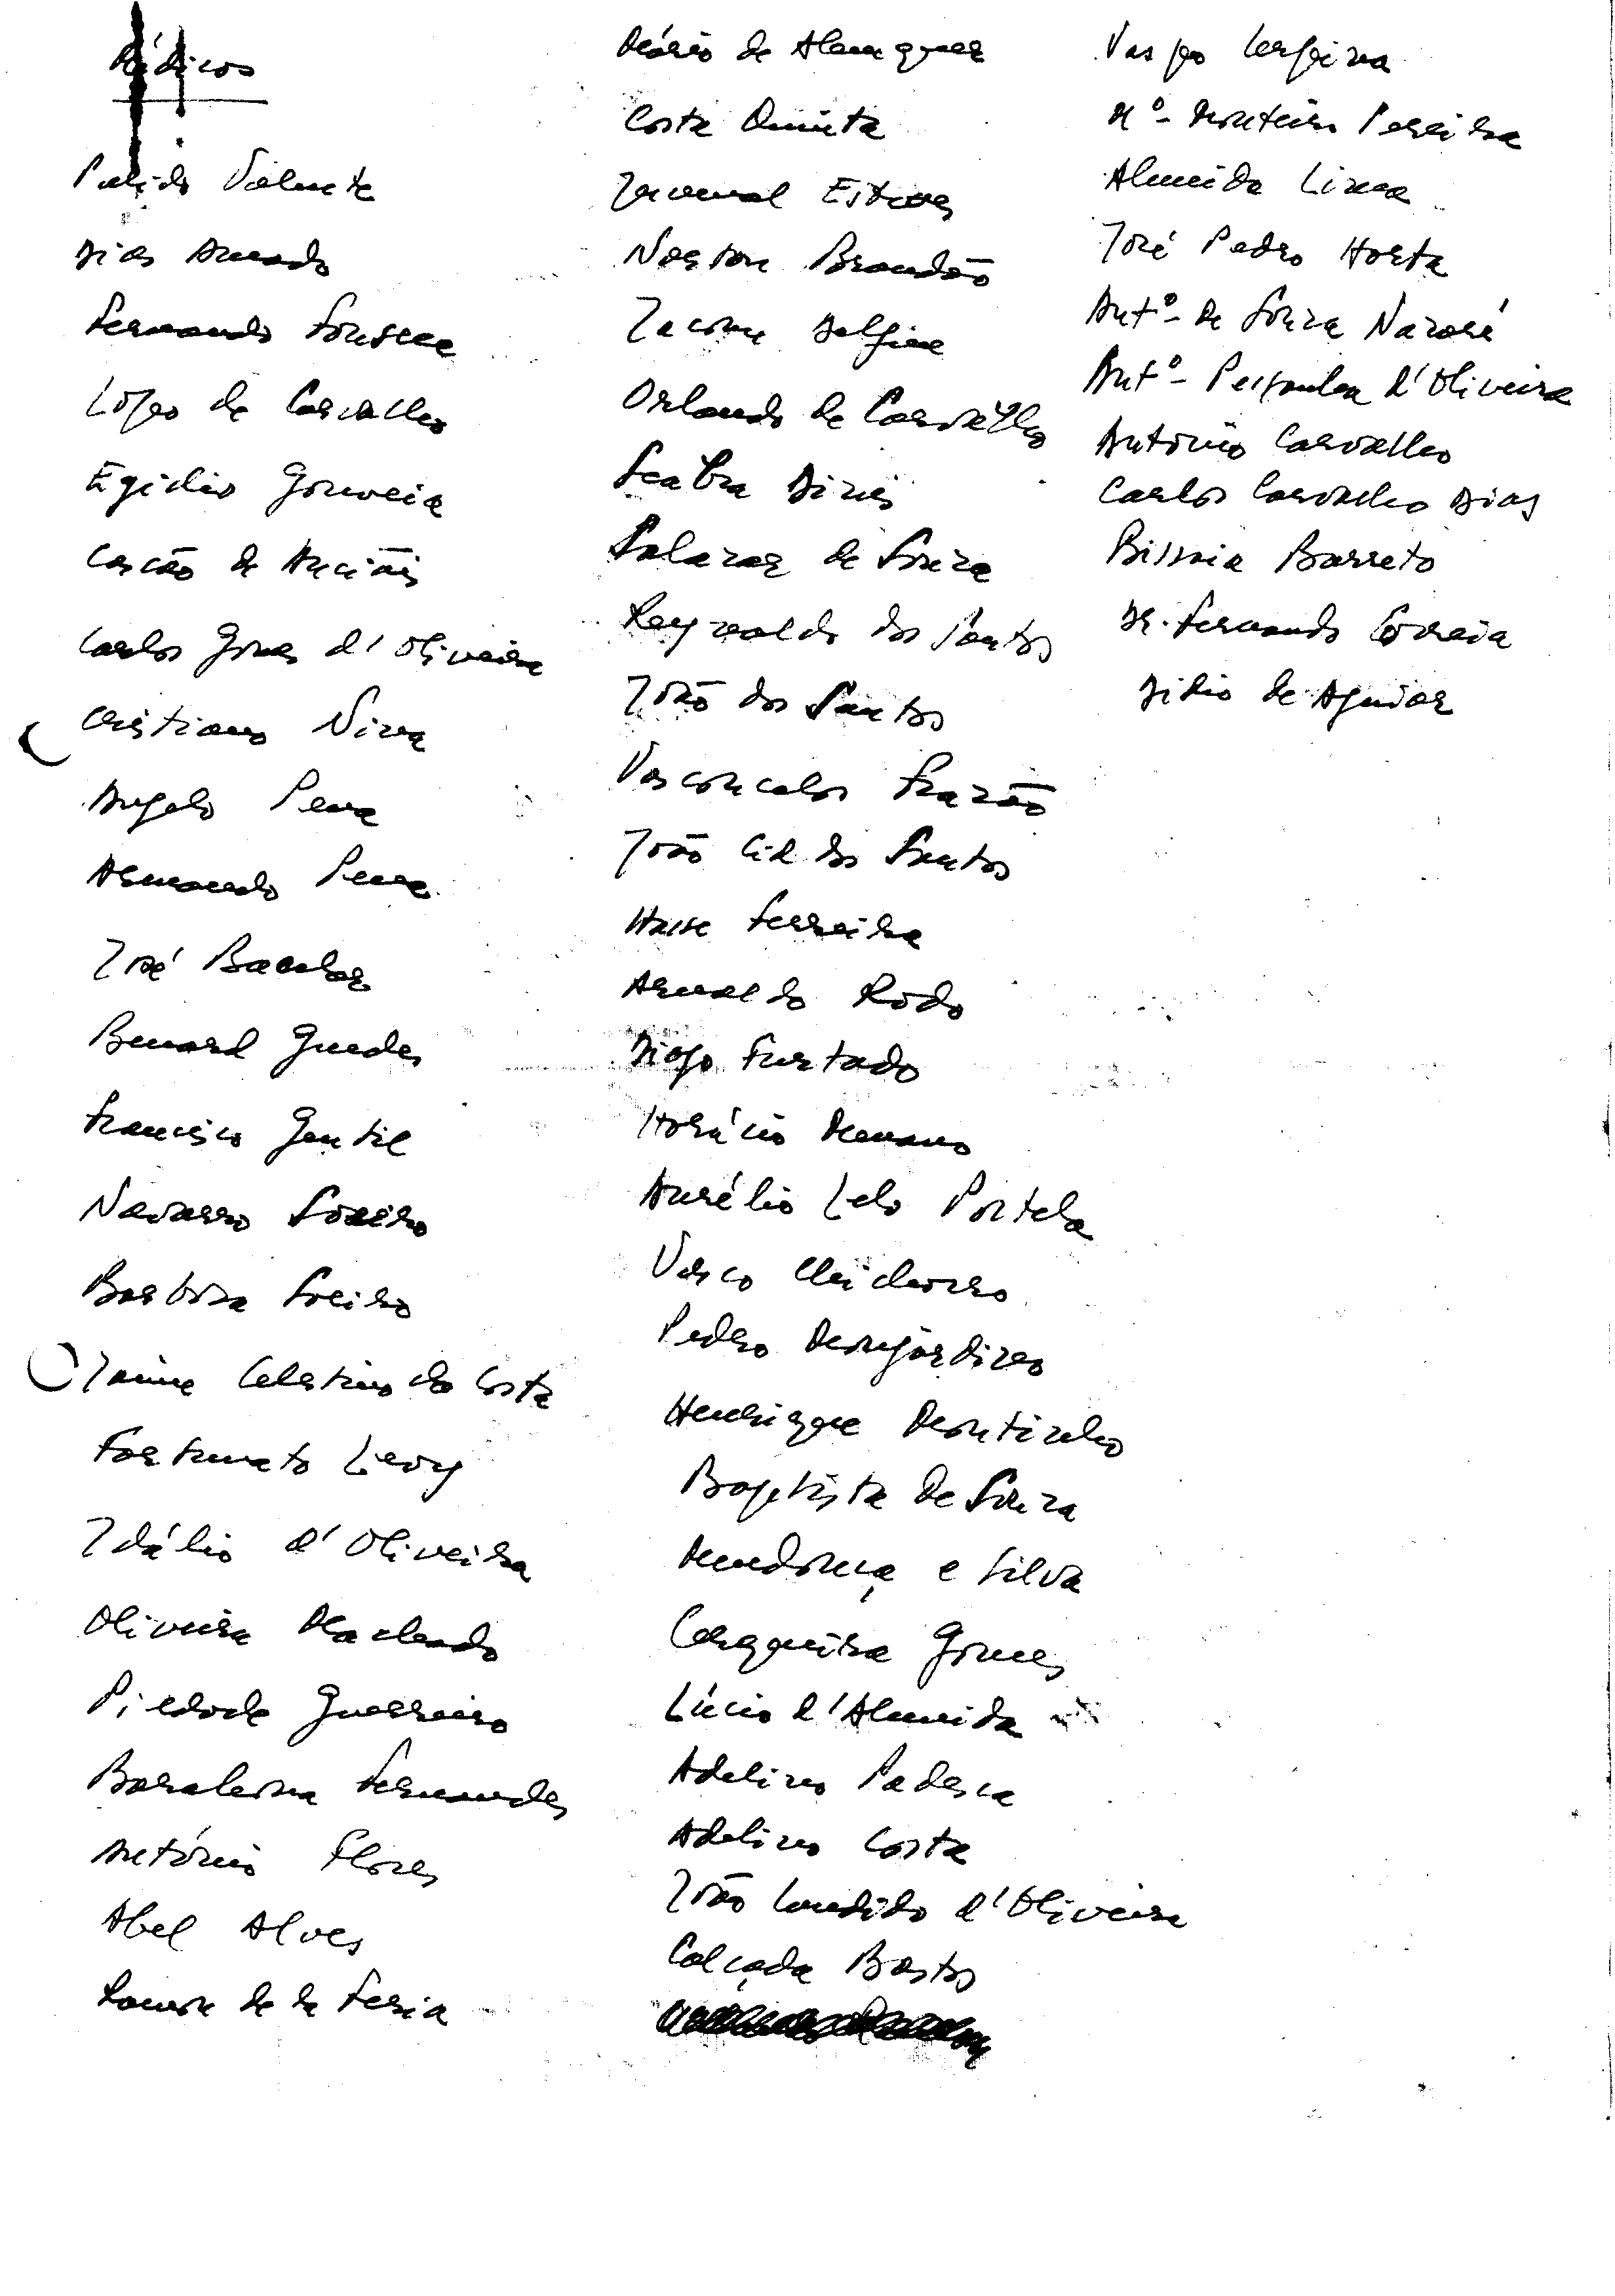 Médicos
Pulido Valente
Dias Amado
Fernando Fonseca
Lopo de Carvalho
Egídio Gouveia
Cascão de Anciães
Carlos Gomes d'Oliveira
Cristiano Nina
Angelo Pena
Armando Pena
José Bacelar
Benard Guedes
Francisco Gentil
Navarro Soeiro
Barbosa Soeiro
Jaime Celestino da Costa
Fortunato Levy
Idálio d'Oliveira
Oliveira Machado
Piedade Guerreiro
Barahona Fernandes
António Flores
Abel Alves
Ramon de la Feria
Mário de Alemquer
Costa Quinta
Juvenal Esteves
Norton Brandão
Jacome Delfim
Orlando de Carvalho
Seabra Dinis
Salazar de Souza
Reynaldo dos Santos
João dos Santos
Vasconcelos Frazão
João Cid dos Santos
Hasse Ferreira
Arnaldo Rodo
Diogo Furtado
Horácio Menano
Aurélio Lelo Portela
Vasco Chichorro
Pedro Monjardino
Henrique Moutinho
Baptista de Souza
Mendonça e Silva
Cerqueira Gomes
Lúcio d'Almeida
Adelino Padesca
Adelino Costa
João Candido d'Oliveira
Calçada Bastos
Mº- Monteiro Pereira
Almeida Lima
José Pedro Horta
Antº- de Souza Nazaré
Antº- d'Oliveira
António Carvalho
Carlos Carvalho Dias
Bissaia Barreto
Dr. Fernando Correia
Didio de Aguiar